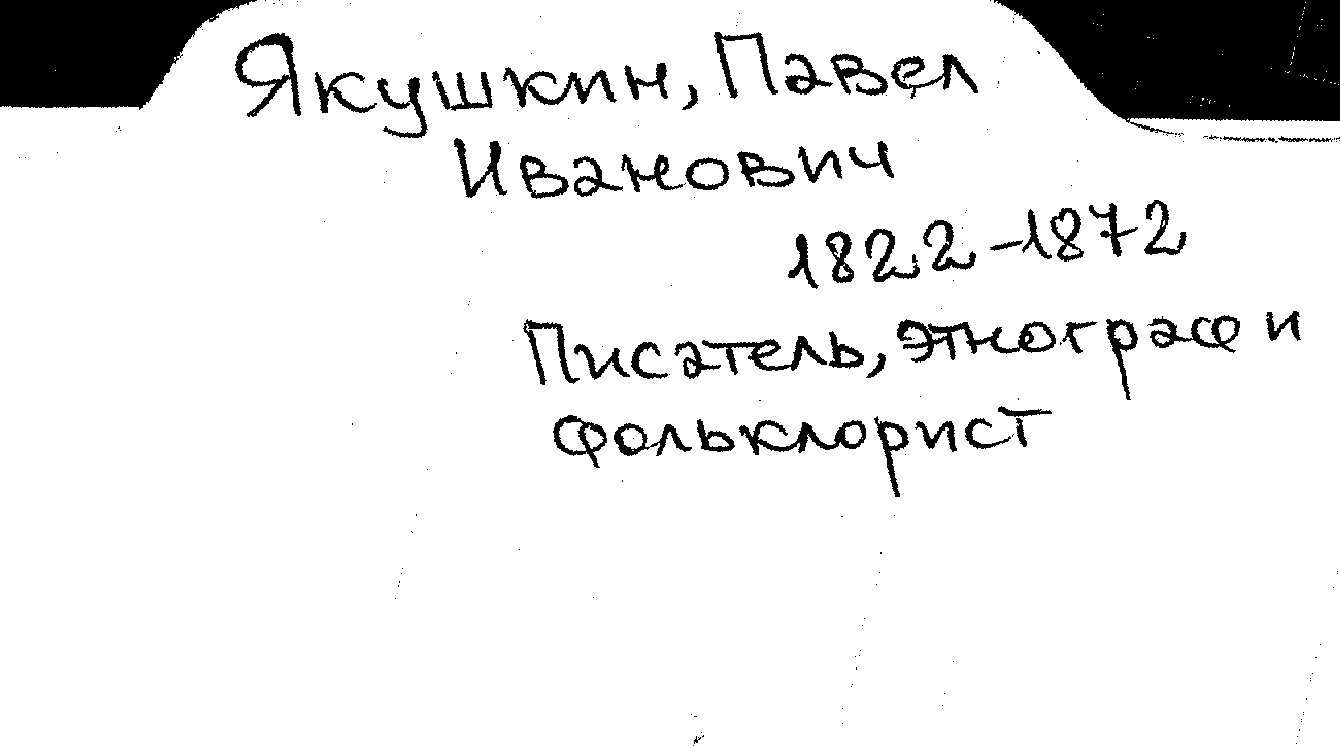 Якушкин, Павел
Иванович
1822-1872
Писатель, этнограф и
фольклорист